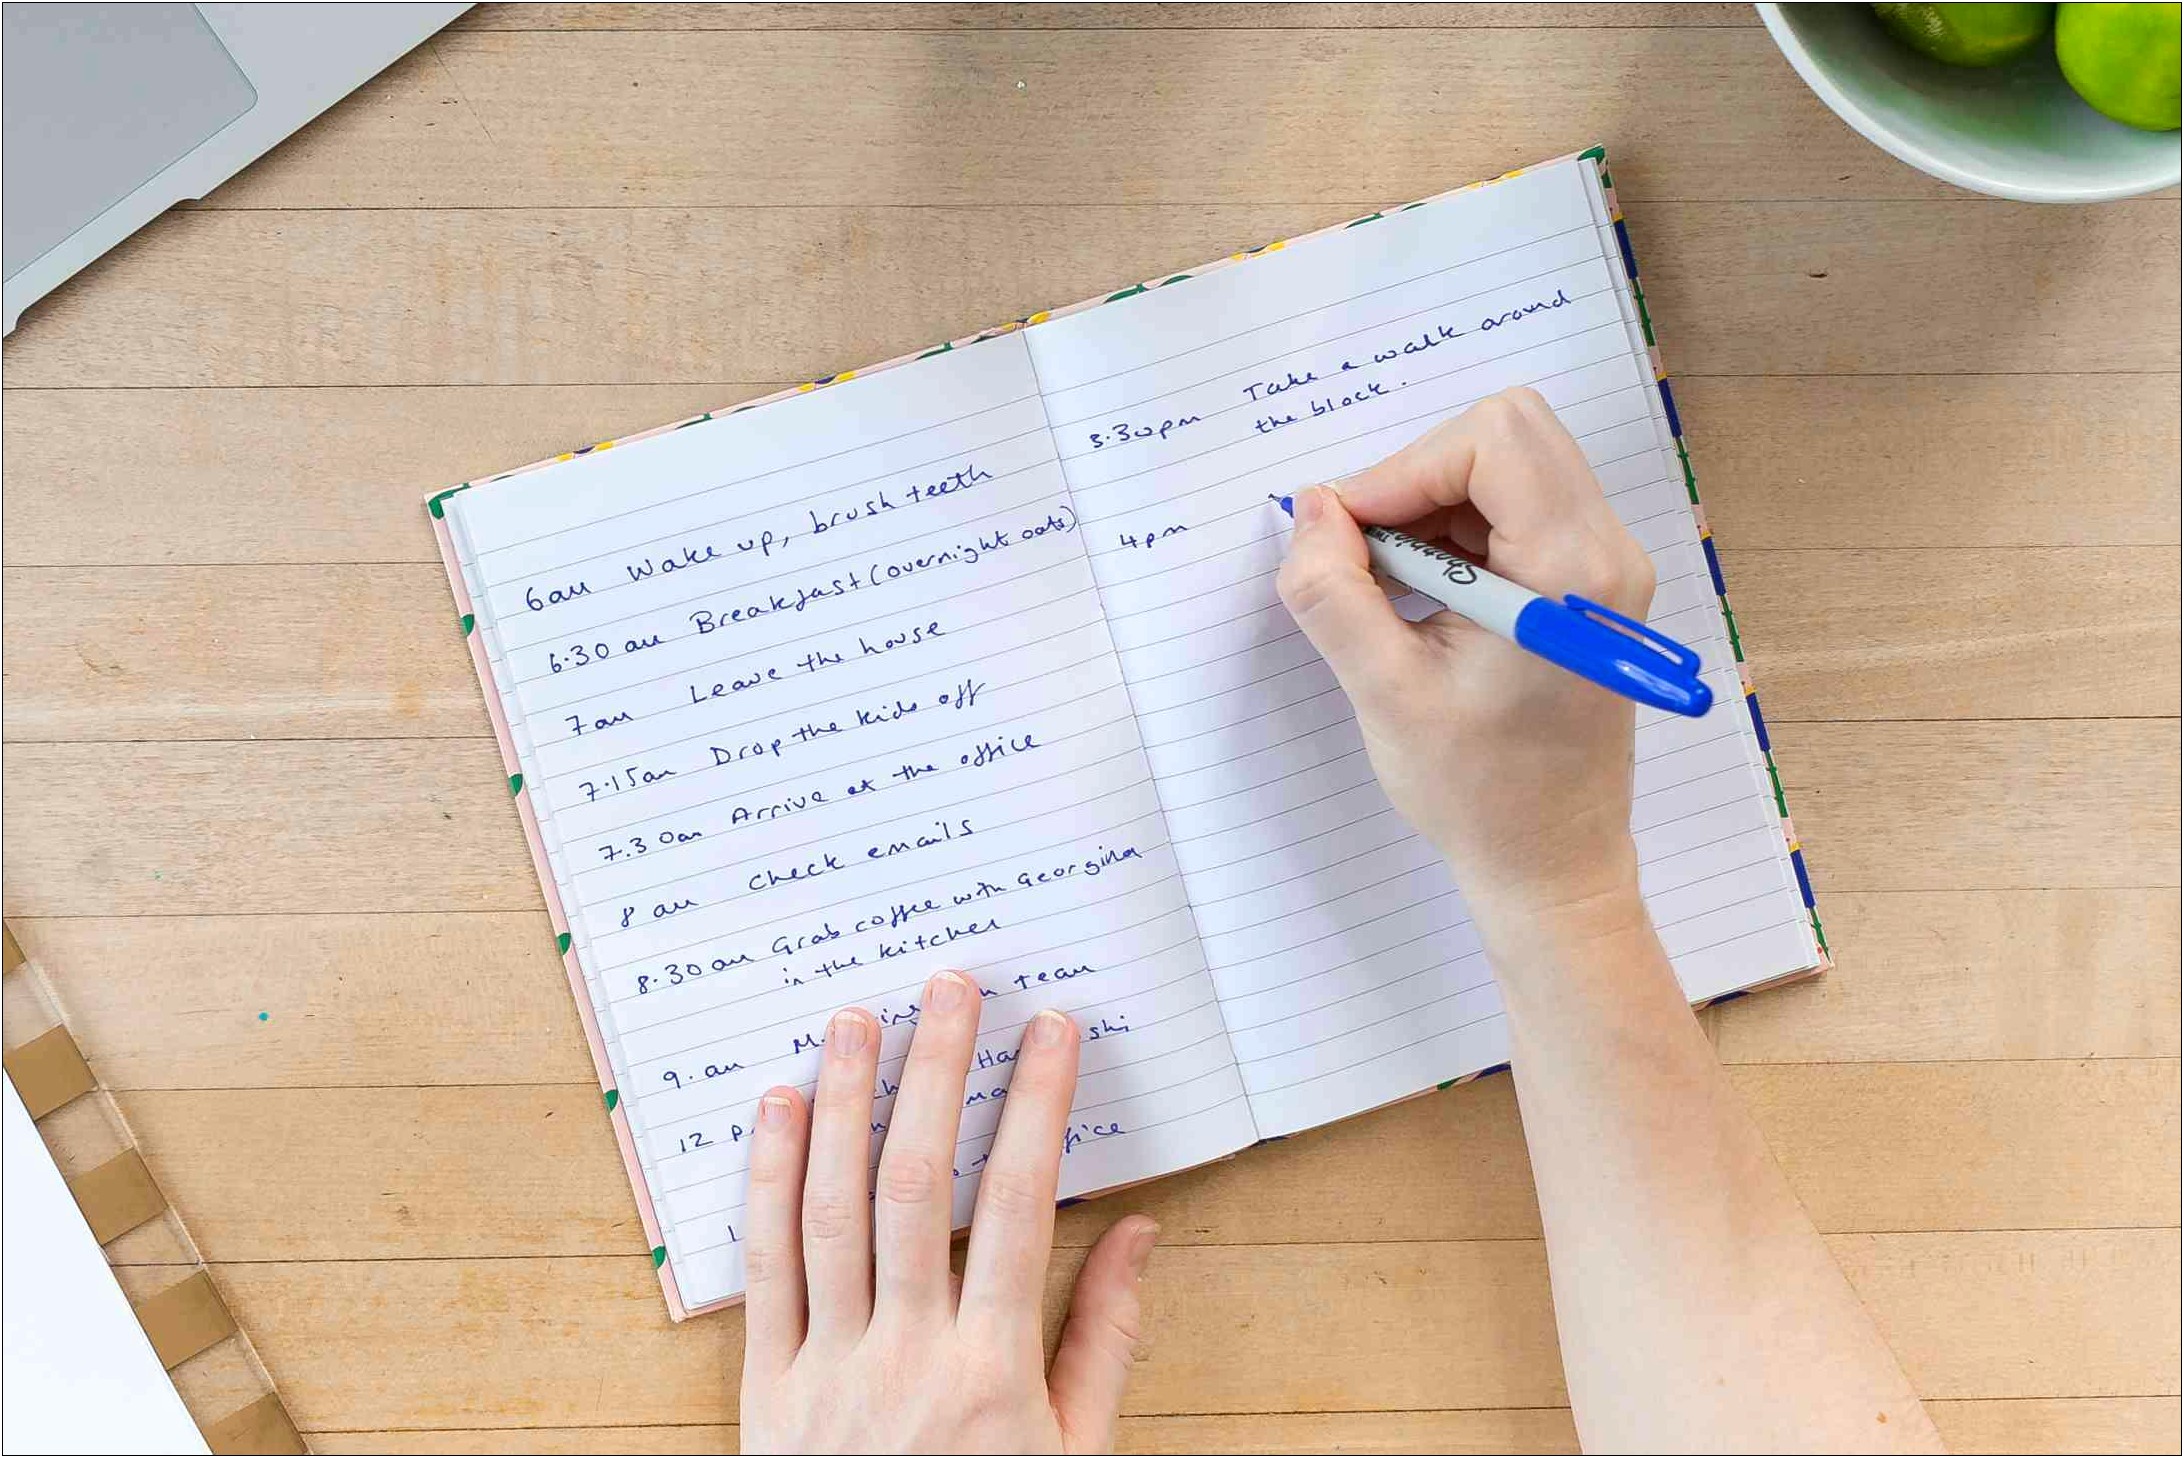 6am Wake up, brush teeth
6.30 am Breakfast (overnight oats)
7am Leave the house
7.15am Drop the kids off
7.30am Arrive at the office
8 am check emails
8.30 am Grab coffee with Georgina
in the kitchen
9.am team
12
3.30pm Take a walk around
the block.
4pm
Sharpie